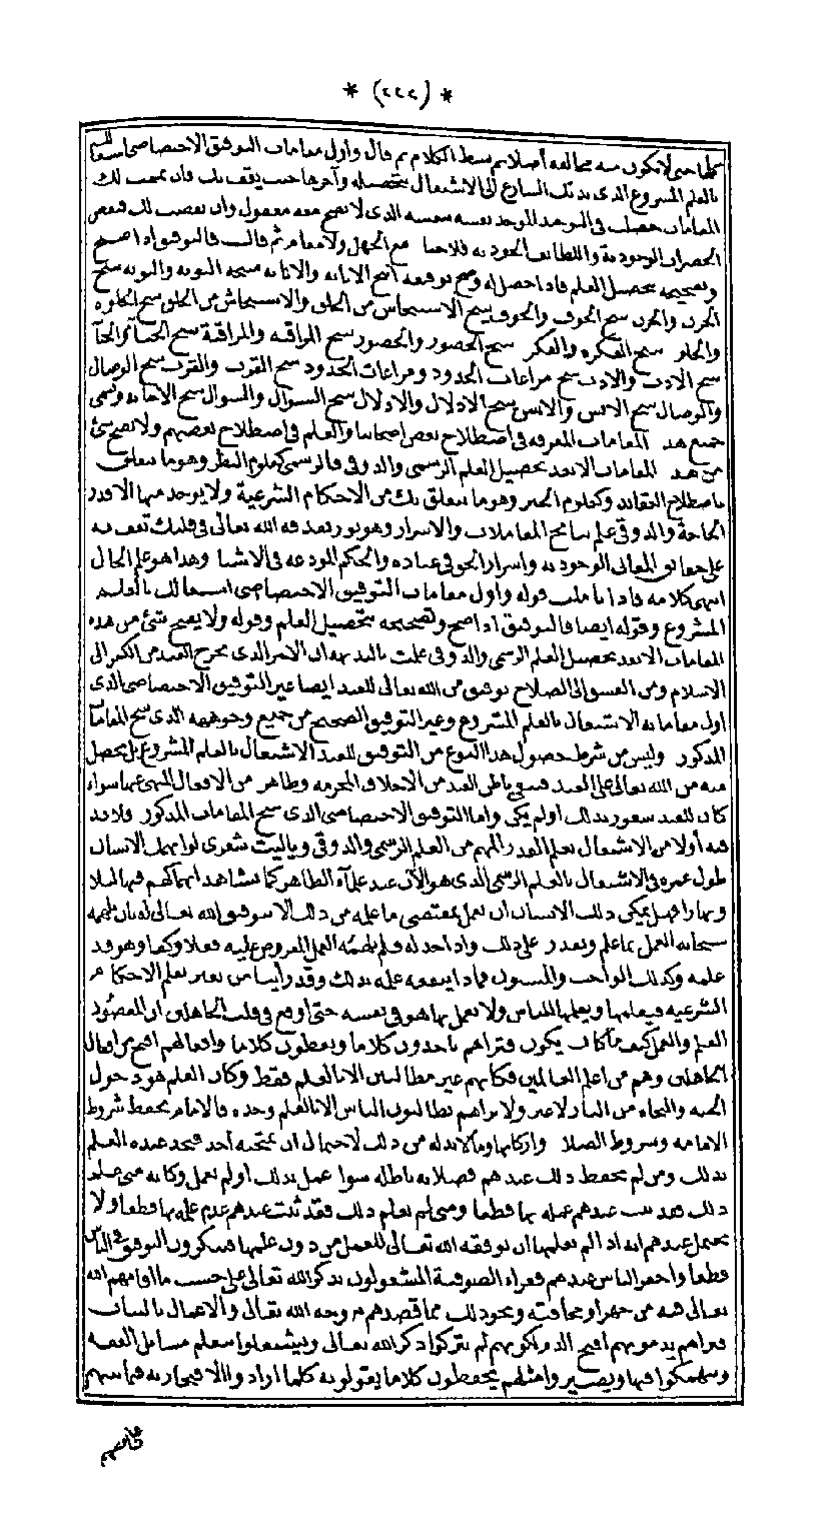 * (٢٢٢) *
كلها حتى لا يكون منه مخالفة أصلا ثم بسط الكلام ثم قال وأول مقامات التوفيق الاختصاصى اشتغالك
بالعلم المشروع الذى ندبك الشارع الى الاشتغال بتحصيله وآخرها حيث يقف بك فان تممت لك
المقامات حصلت فى التوحيد الموحد نفسه بنفسه الذى لا يصح معه معقول وان نقصت لك فبعض
الحضرات الوجودية واللطائف الجودية فلاحيا مع الجهل ولا مقام ثم قال فالتوفيق اذا صح
وتصحيحه بتحصيل العلم فاذا حصل له وصح توفيقه أنتج الانابة والانابة منتجة التوبة والتوبة تنتج
الحزن والحزن ينتج الخوف والخوف ينتج الاستيحاش من الخلق والاستيحاش من الخلق ينتج الخلوة
والخلوة تنتج الفكرة والفكرة تنتج الحضور والحضور ينتج المراقبة والمراقبة تنتج الحياء والحياء
ينتج الادب والادب ينتج مراعات الحدود ومراعات الحدود تنتج القرب والقرب ينتج الوصال
والوصال ينتج الانس والانس ينتج الادلال والادلال ينتج السؤال والسؤال ينتج الاجابة وتسمى
جميع هذه المقامات المعرفة فى اصطلاح بعض أصحابنا والعلم فى اصطلاح بعضهم ولا يصح شئ
من هذه المقامات الا بعد تحصيل العلم الرسمى والذوقى فالرسمى كعلوم النظر وهو ما يتعلق
باصطلاح العقائد وكعلوم الخبر وهو ما يتعلق بك من الاحكام الشرعية ولا يوجد منها الا قدر
الحاجة والذوقى علم نتائج المعاملات والاسرار وهو نور يقذفه الله تعالى فى قلبك تقف به
على حقائق المعانى الوجودية واسرار الحق فى عباده والحكم المودعة فى الاشياء وهذا هو علم الحال
انتهى كلامه فاذا تأملت قوله وأول مقامات التوفيق الاختصاصى اشتغالك بالعلم
المشروع وقوله ايضا فالتوفيق اذا صح وتصحيحه بتحصيل العلم وقوله ولا يصح شئ من هذه
المقامات الا بعد تحصيل العلم الرسمى والذوقى علمت بالبديهة ان الامر الذى يخرج العبد من الكفر الى
الاسلام ومن الفسق الى الصلاح توفيق من الله تعالى للعبد ايضا غير التوفيق الاختصاصى الذى
اول مقاماته الاشتغال بالعلم المشروع وغير التوفيق الصحيح من جميع وجوهه الذى ينتج المقامات
المذكورة وليس من شرط حصول هذا النوع من التوفيق للعبد الاشتغال بالعلم المشروع بل يحصل
منه من الله تعالى على العبد فينقى باطن العبد من الاخلاق المحرمة وظاهره من الافعال المنهى عنها سواء
كان للعبد شعور بذلك أو لم يكن واما التوفيق الاختصاصى الذى ينتج المقامات المذكورة فلا بد
فيه أولا من الاشتغال بعلم القدر المهم من العلم الرسمى والذوقى وياليت شعرى لو انهمك الانسان
طول عمره فى الاشتغال بالعلم الرسمى الذى هو الآن عند علماء الظاهر كما نشاهد انهماكهم فيها ليلا
ونهارا فهل يمكن ذلك الانسان ان يعمل بمقتضى ما علمه من ذلك الا بتوفيق الله تعالى له بأن يلهمه
سبحانه العمل بما علم ويقدره على ذلك واذا خذله فلم يلهمه العمل المفروض عليه فعلا وكفا وهو قد
علمه وكذلك الواجب والمسنون فماذا ينفعه علمه بذلك وقد رأينا من يعتبر تعلم الاحكام
الشرعية فيعلمها ويعلمها للناس ولا يعمل بها هو فى نفسه حتى أوقع فى قلب الجاهلين ان المقصود
العلم والعمل كيف ما كان يكون فتراهم يأخذون كلاما ويعطون كلاما وافعالهم اقبح من افعال
الجاهلين وهم من أعلم العالمين فكأنهم غير مطالبين الا بالعلم فقط وكأن العلم هو دخول
الجنة والنجاة من النار لا غير ولا تراهم يطالبون الناس الا بالعلم وحده فالامام يحفظ شروط
الامامة وشروط الصلاة واركانها وما لا بد له من ذلك لاحتمال ان يمتحنه أحد فيجد عنده العلم
بذلك ومن لم يحفظ ذلك عندهم فصلاته باطلة سواء عمل بذلك أو لم يعمل وكأنه متى علم
ذلك فقد ثبت عندهم عمله بها قطعا ومتى لم يعلم ذلك فقد ثبت عندهم عدم علمه بها قطعا ولا
يحتمل عندهم انه اذا لم يعلمها ان يوفقه الله تعالى للعمل من دون علمها فينكرون التوفيق فى الناس
قطعا واحقر الناس عندهم فقراء الصوفية المشغولون بذكر الله تعالى على حسب ما أقامهم الله
تعالى فيه من جهر أو مخافتة ونحو ذلك مما قصدهم وجه الله تعالى والاعمال بالنيات
فتراهم يذمونهم أقبح الذم لكونهم لم يتركوا ذكر الله تعالى ويشتغلوا بتعلم مسائل الفقه
وينهمكوا فيها ويصير وامثلهم يحفظون كلاما يقولونه كلما ارادوا والا فيما ربه فيما بينهم